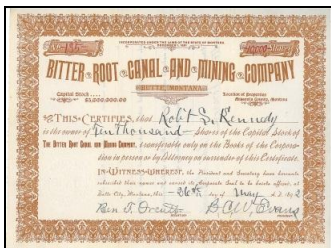 INCORPORATED UNDER THE LAWS OF THE STATE OF MONTANA
BITTER ROOT CANAL AND MINING COMPANY
BUTTE, MONTANA
Capital Stock
$1,000,000.00
Location of Properties
Missoula County, Montana
THIS CERTIFIES, that Rob't S. Kennedy
is the owner of Ten thousand Shares of the Capital Stock of
THE BITTER ROOT CANAL AND MINING COMPANY, transferable only on the Books of the Corpora-
tion in person or by Attorney on surrender of this Certificate.
IN WITNESS WHEREOF, the President and Secretary have hereunto
subscribed their names and caused the Corporate Seal to be hereto affixed, at
Butte City, Montana, this 26th day of May A.D.
Evans